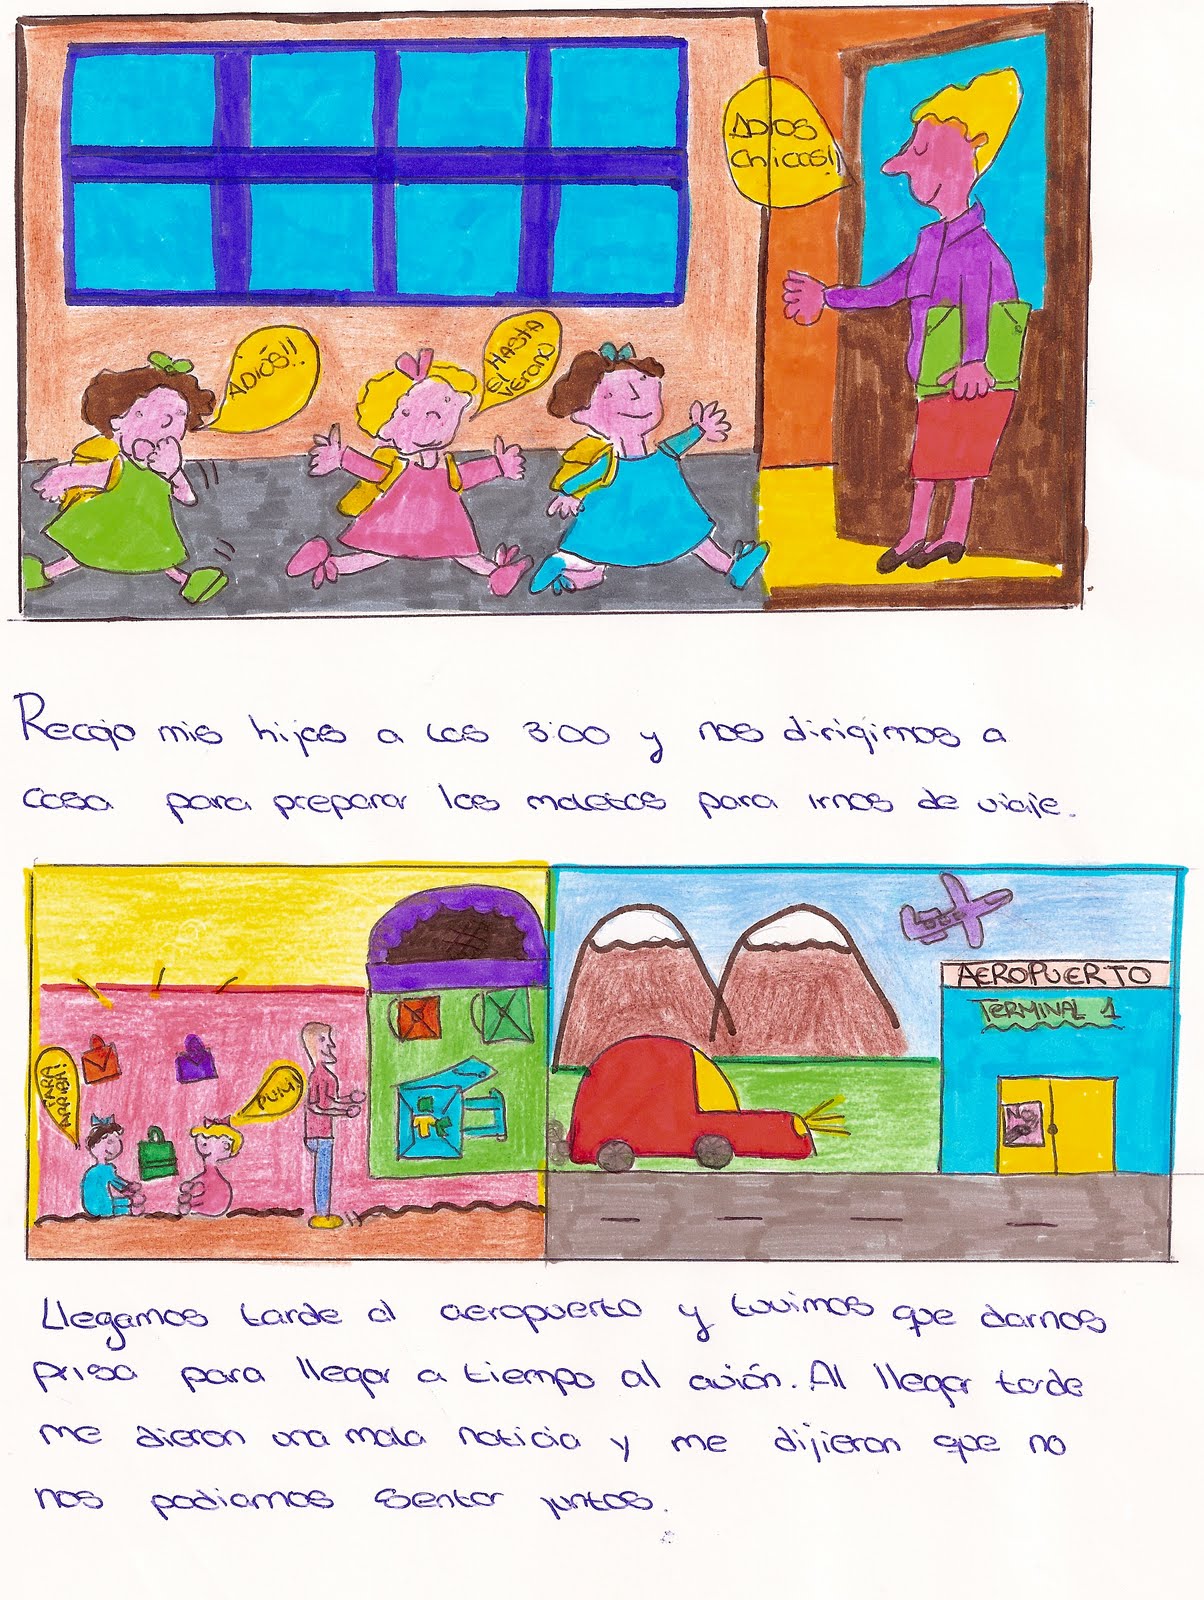 ADIOS
Chicas!!
ADIÓS!!
HASTA
EL
VERANO
Recojo mis hijas a las 3:00 y nos dirigimos a
casa para preparar las maletas para irnos de viaje.
TARA
ARRIBA!
PUM!
AEROPUERTO
TERMINAL 1
NO
Llegamos tarde al aeropuerto y tuvimos que darnos
prisa para llegar a tiempo al avión. Al llegar tarde
me dieron una mala noticia y me dijieron que no
nos podiamos sentar juntos.